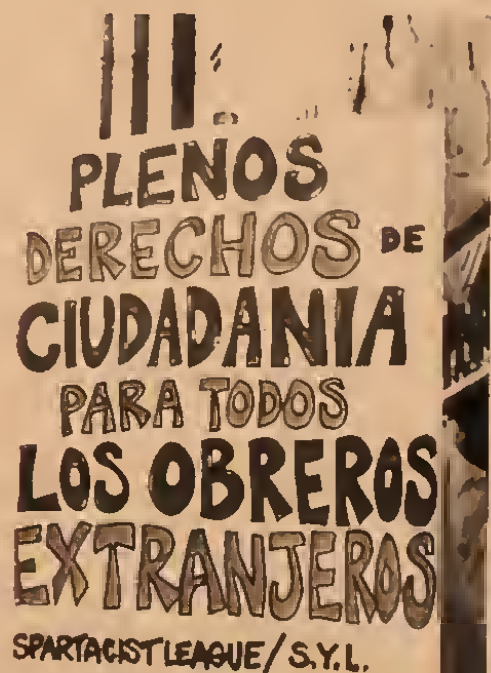 PLENOS
DERECHOS DE
CIUDADANIA
PARA TODOS
LOS OBREROS
EXTRANJEROS
SPARTACIST LEAGUE/S.Y.L.